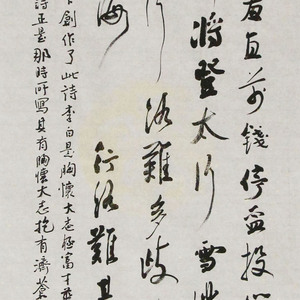 羞直萬錢停盃投
將登太行雪
行路難多歧
海
行路難其
創作了此詩李白是胸懷大志極富才
詩正是那時所寫具有胸懷大志抱有濟蒼